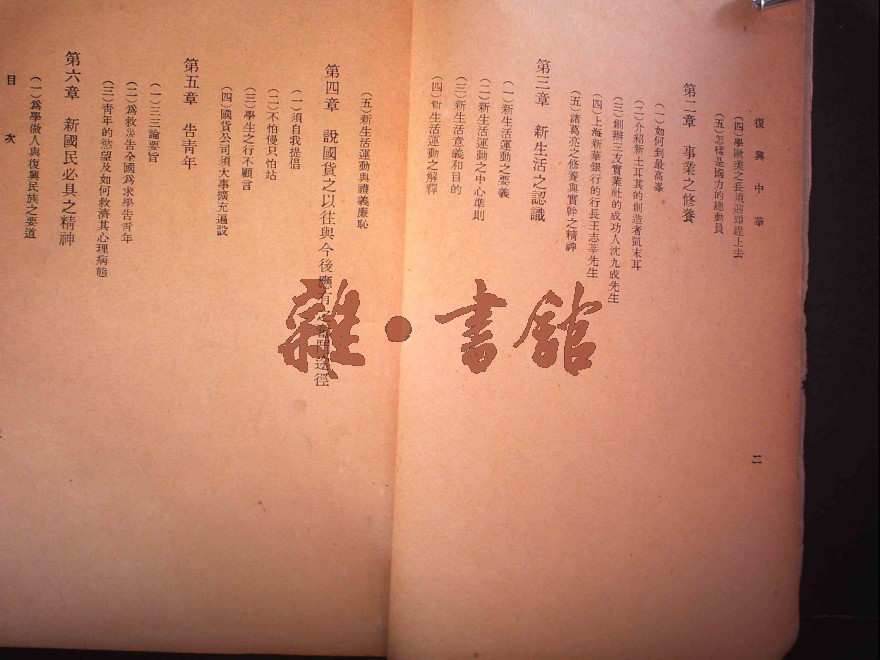 復興中華
二
(四)學歐美之長須迎頭趕上去
(五)怎樣是國力的總動員
第二章 事業之修養
(一)如何到最高峯
(二)介紹新土耳其的創造者凱末耳
(三)創辦三友實業社的成功人沈九成先生
(四)上海新華銀行的行長王志莘先生
(五)諸葛亮之修養與實幹之精神
第三章 新生活之認識
(一)新生活運動之要義
(二)新生活運動之中心準則
(三)新生活意義和目的
(四)新生活運動之解釋
(五)新生活運動與禮義廉恥
第四章 說國貨之以往與今後應有之 途徑
(一)須自我提倡
(二)不怕慢只怕站
(三)學生之行不顧言
(四)國貨公司須大事擴充遍設
第五章 告青年
(一)三三論要旨
(二)為救災告全國為求學告青年
(三)青年的慾望及如何救濟其心理病態
第六章 新國民必具之精神
(一)為學做人與復興民族之要道
目次
雜·書館